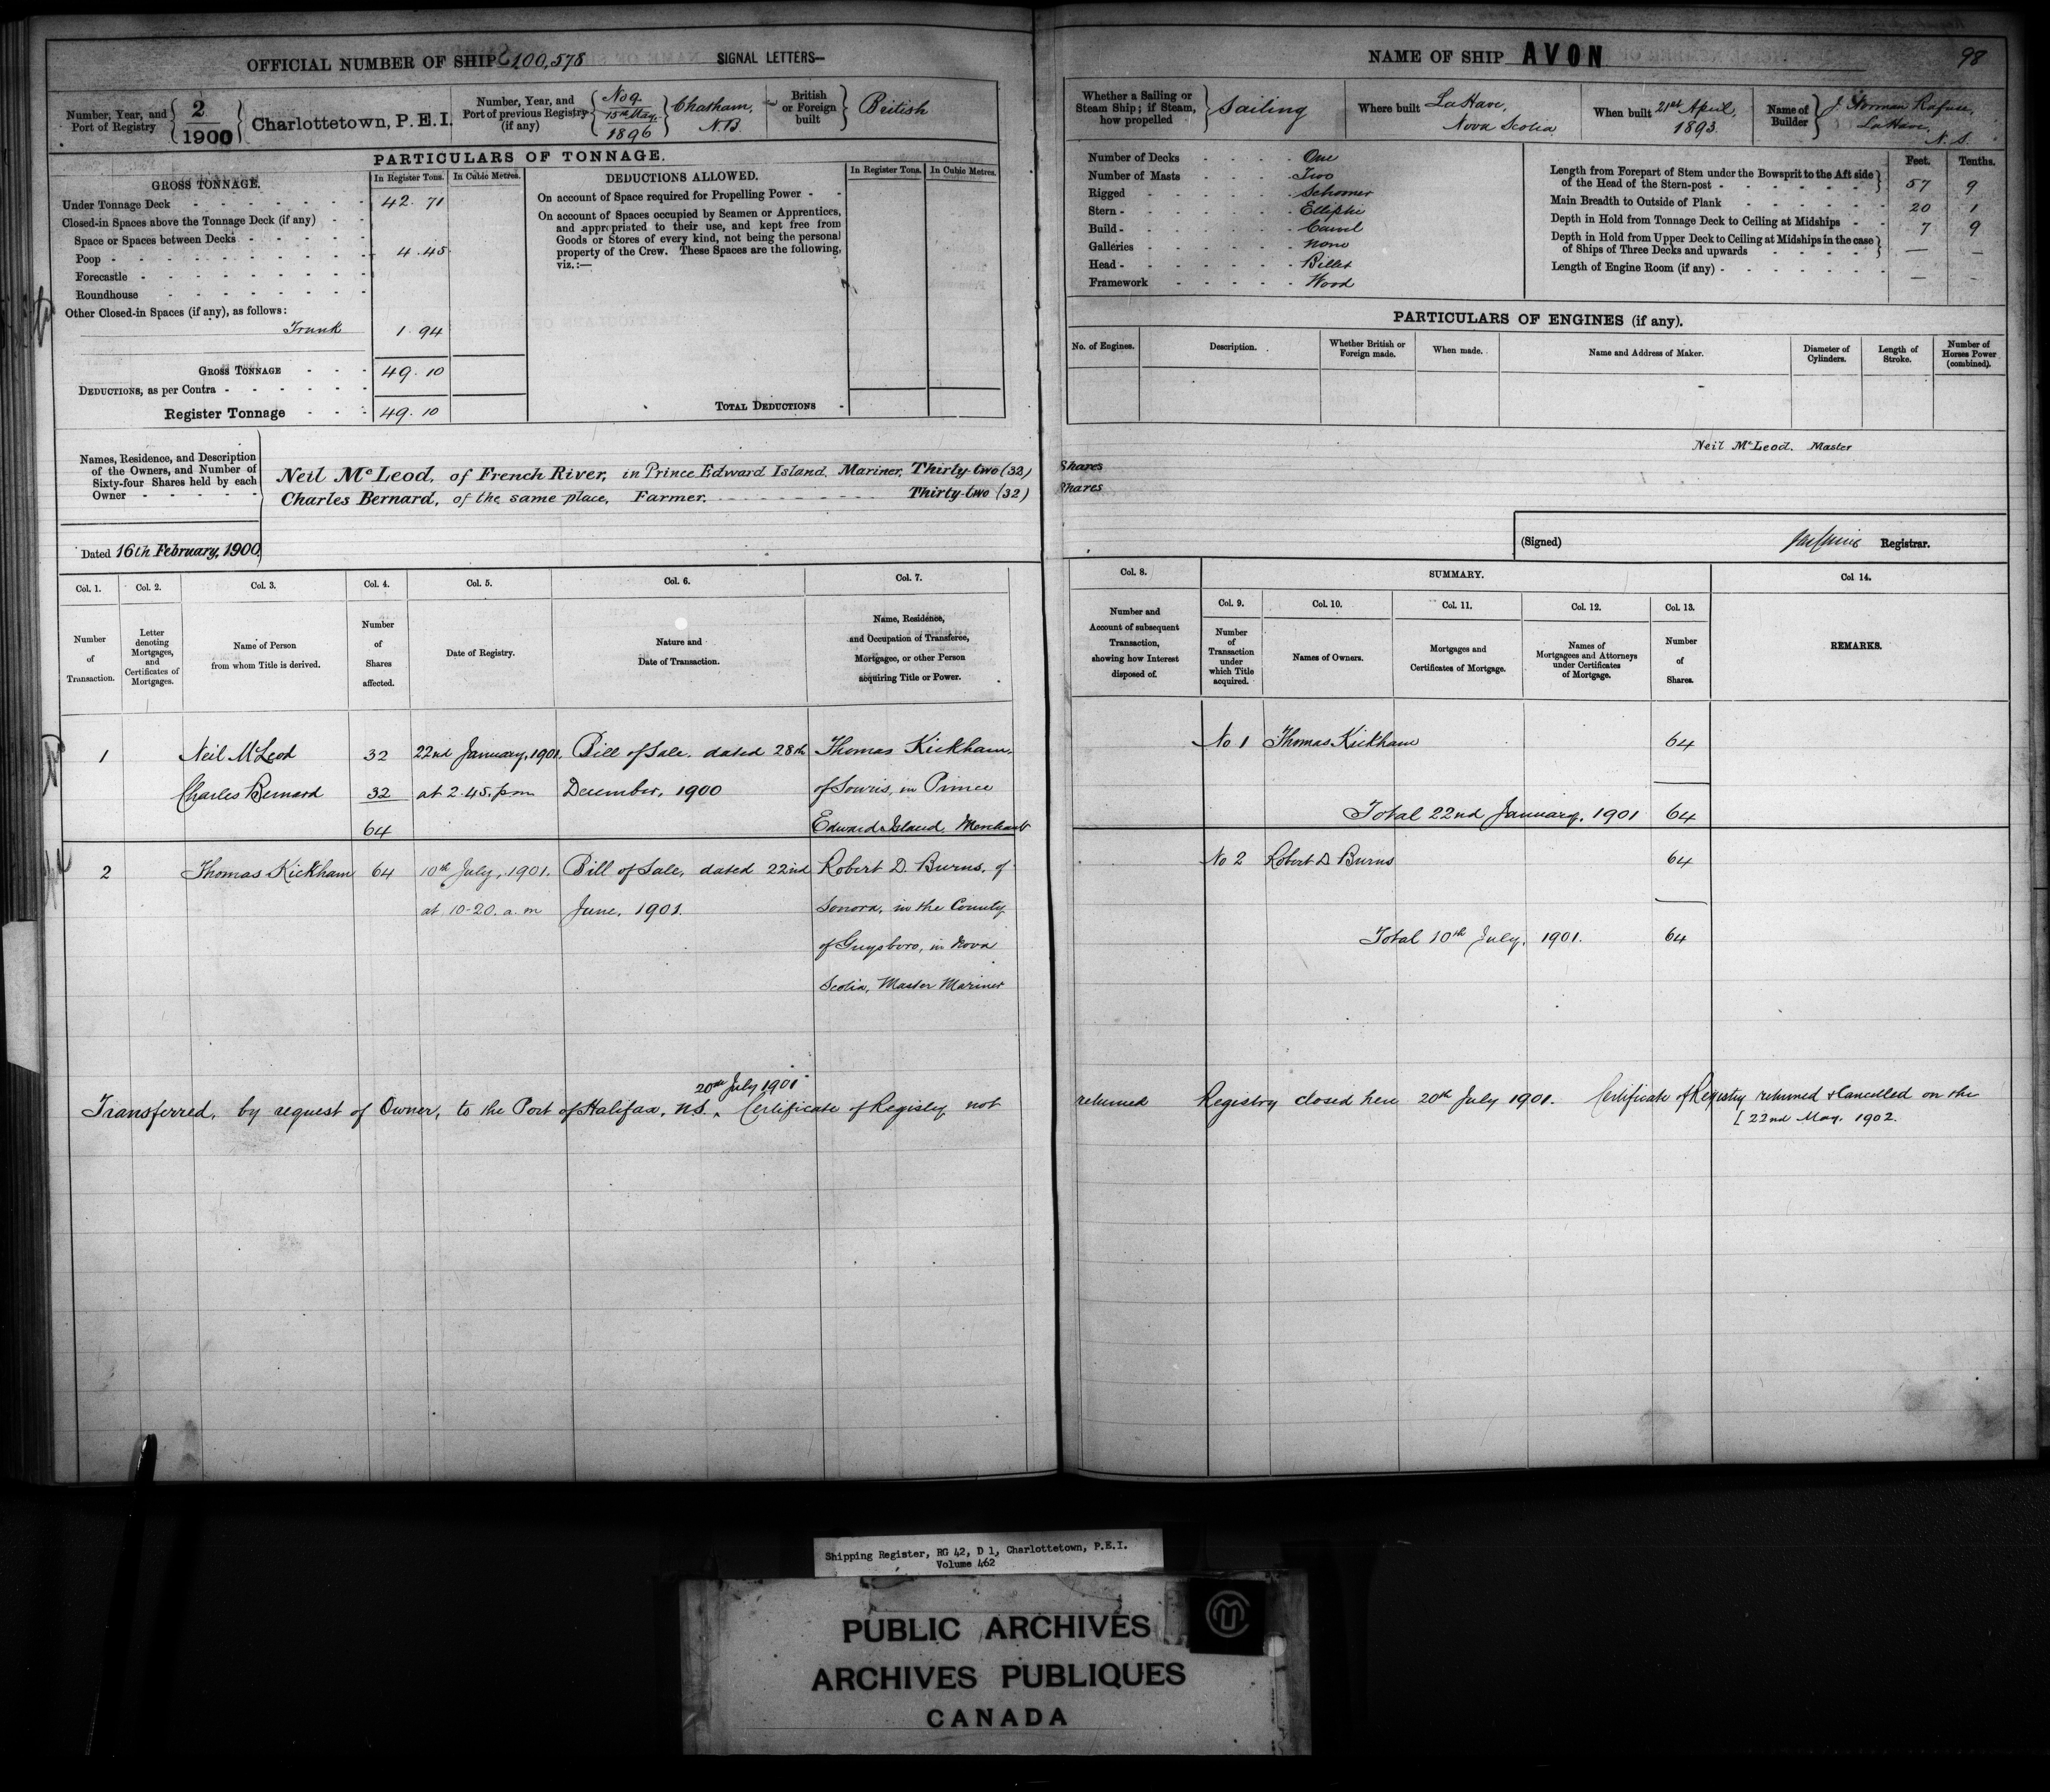 OFFICIAL NUMBER OF SHIP 100,578 SIGNAL LETTERS—
Number, Year, and Port of Registry 2 1900 Charlottetown, P.E.I.
Number, Year, and Port of previous Registry (if any) No 9. 15th May, 1896 Chatham, N.B.
British or Foreign built British
PARTICULARS OF TONNAGE.
GROSS TONNAGE. In Register Tons. In Cubic Metres.
Under Tonnage Deck 42.71
Closed-in Spaces above the Tonnage Deck (if any)
Space or Spaces between Decks
Poop 4.45
Forecastle
Roundhouse
Other Closed-in Spaces (if any), as follows:
Trunk 1.94
GROSS TONNAGE 49.10
DEDUCTIONS, as per Contra
Register Tonnage 49.10
DEDUCTIONS ALLOWED. In Register Tons. In Cubic Metres.
On account of Space required for Propelling Power
On account of Spaces occupied by Seamen or Apprentices,
and appropriated to their use, and kept free from
Goods or Stores of every kind, not being the personal
property of the Crew. These Spaces are the following,
viz.:—
TOTAL DEDUCTIONS
Names, Residence, and Description
of the Owners, and Number of
Sixty-four Shares held by each
Owner
Neil McLeod, of French River, in Prince Edward Island, Mariner, Thirty-two (32)
Charles Bernard, of the same place, Farmer, Thirty-two (32)
Dated 16th February, 1900
Col. 1. Col. 2. Col. 3. Col. 4. Col. 5. Col. 6. Col. 7.
Number of Transaction.
Letter denoting Mortgages, and Certificates of Mortgages.
Name of Person from whom Title is derived.
Number of Shares affected.
Date of Registry.
Nature and Date of Transaction.
Name, Residence, and Occupation of Transferee, Mortgagee, or other Person acquiring Title or Power.
1 Neil McLeod 32 22nd January, 1901, Bill of Sale, dated 28th Thomas Kickham,
Charles Bernard 32 at 2.45. p.m December, 1900 of Souris, in Prince
64 Edward Island, Merchant
2 Thomas Kickham 64 10th July, 1901. Bill of Sale, dated 22nd Robert D. Burns, of
at 10-20. a.m June, 1901. Sonora, in the County
of Guysboro, in Nova
Scotia, Master Mariner
20th July 1901
Transferred, by request of Owner, to the Port of Halifax, N.S. Certificate of Registry not
NAME OF SHIP AVON 98
Whether a Sailing or Steam Ship; if Steam, how propelled Sailing
Where built LaHave, Nova Scotia
When built 21st April, 1893.
Name of Builder J. Norman Rafuse, LaHave, N.S.
Number of Decks One
Number of Masts Two
Rigged Schooner
Stern Elliptic
Build Carvel
Galleries None
Head Billet
Framework Wood
Feet. Tenths.
Length from Forepart of Stem under the Bowsprit to the Aft side
of the Head of the Stern-post 57 9
Main Breadth to Outside of Plank 20 1
Depth in Hold from Tonnage Deck to Ceiling at Midships 7 9
Depth in Hold from Upper Deck to Ceiling at Midships in the case
of Ships of Three Decks and upwards — —
Length of Engine Room (if any) — —
PARTICULARS OF ENGINES (if any).
No. of Engines. Description. Whether British or Foreign made. When made. Name and Address of Maker. Diameter of Cylinders. Length of Stroke. Number of Horses Power (combined).
Neil McLeod. Master
Shares
Shares
(Signed) Registrar.
Col. 8. SUMMARY. Col 14.
Col. 9. Col. 10. Col. 11. Col. 12. Col. 13.
Number and Account of subsequent Transaction, showing how Interest disposed of.
Number of Transaction under which Title acquired.
Names of Owners.
Mortgages and Certificates of Mortgage.
Names of Mortgagees and Attorneys under Certificates of Mortgage.
Number of Shares.
REMARKS.
No 1 Thomas Kickham 64
Total 22nd January, 1901 64
No 2 Robert D Burns 64
Total 10th July, 1901. 64
returned Registry closed here 20th July 1901. Certificate of Registry returned & Cancelled on the
22nd May, 1902.
Shipping Register, RG 42, D 1, Charlottetown, P.E.I.
Volume 462
PUBLIC ARCHIVES
ARCHIVES PUBLIQUES
CANADA